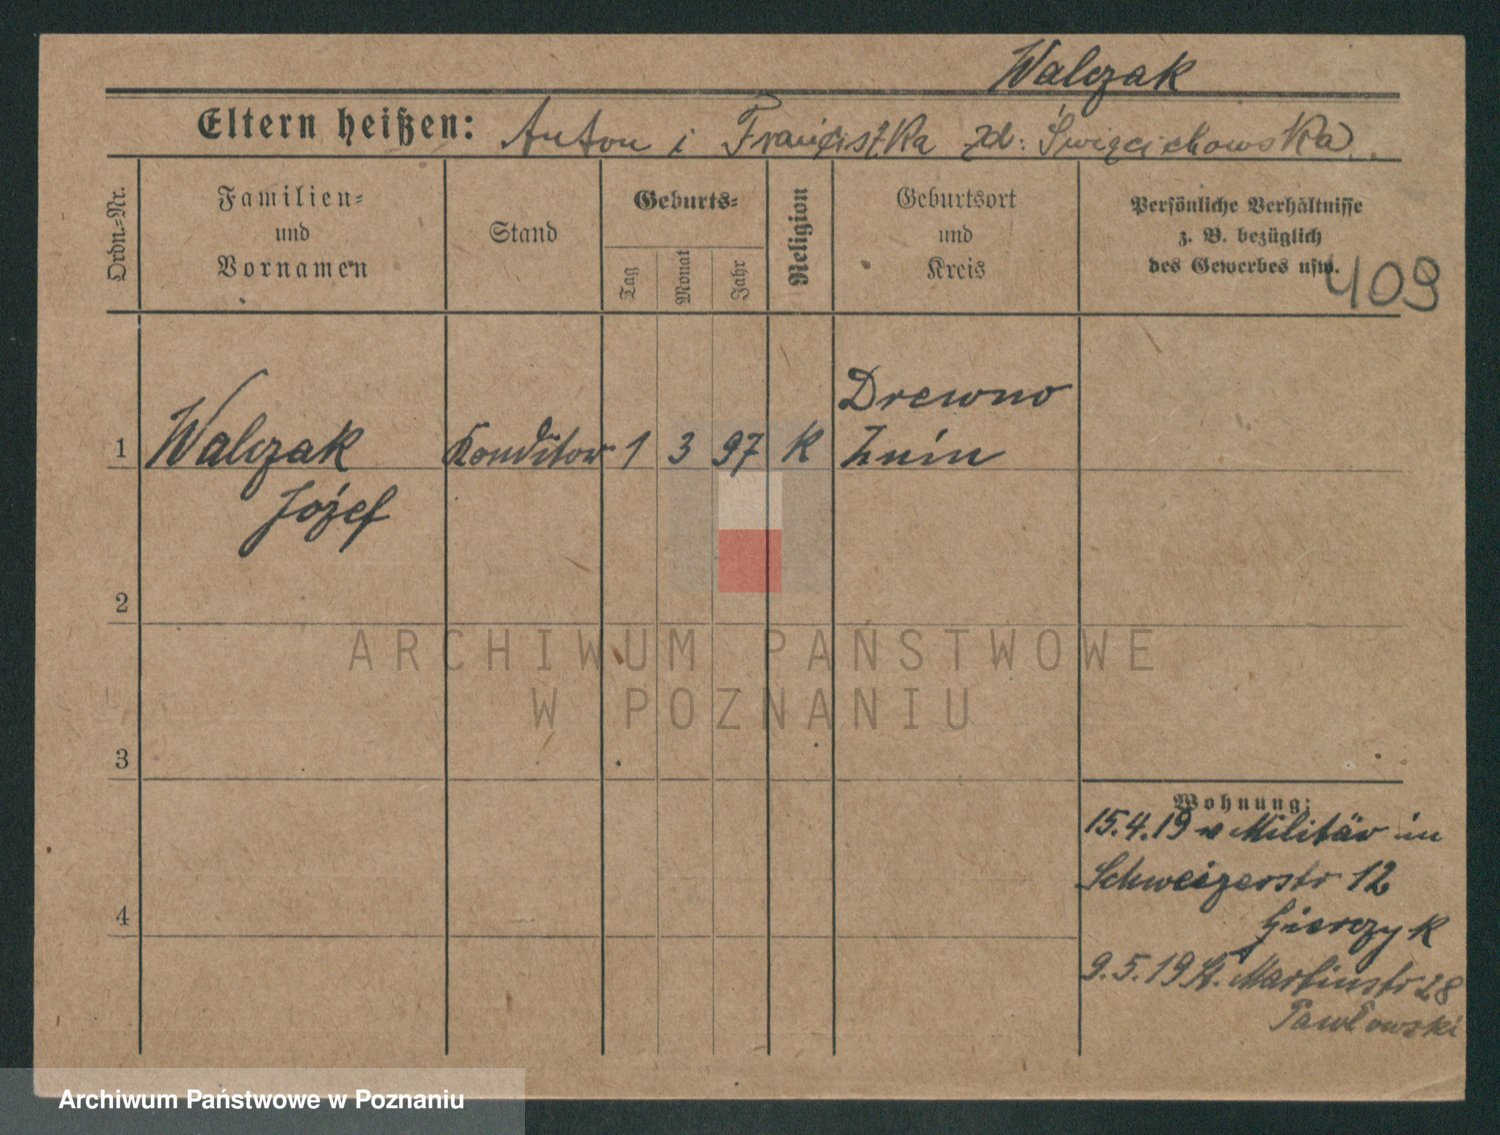 Walczak
Eltern heißen: Anton i Franciszka zd: Święcichowska
Ordn.-Nr.
Familien-
und
Vornamen
Stand
Geburts-
Tag
Monat
Jahr
Religion
Geburtsort
und
Kreis
Persönliche Verhältnisse
z. B. bezüglich
des Gewerbes usw.
409
Drewno
1 Walczak Konditor 1 3 97 K Znin
Józef
2
3
4
Wohnung:
15.4.19 v Militär in
Schweizerstr 12
Gierczyk
9.5.19 St. Martinstr 28
Pawłowski
ARCHIWUM PAŃSTWOWE
W POZNANIU
Archiwum Państwowe w Poznaniu